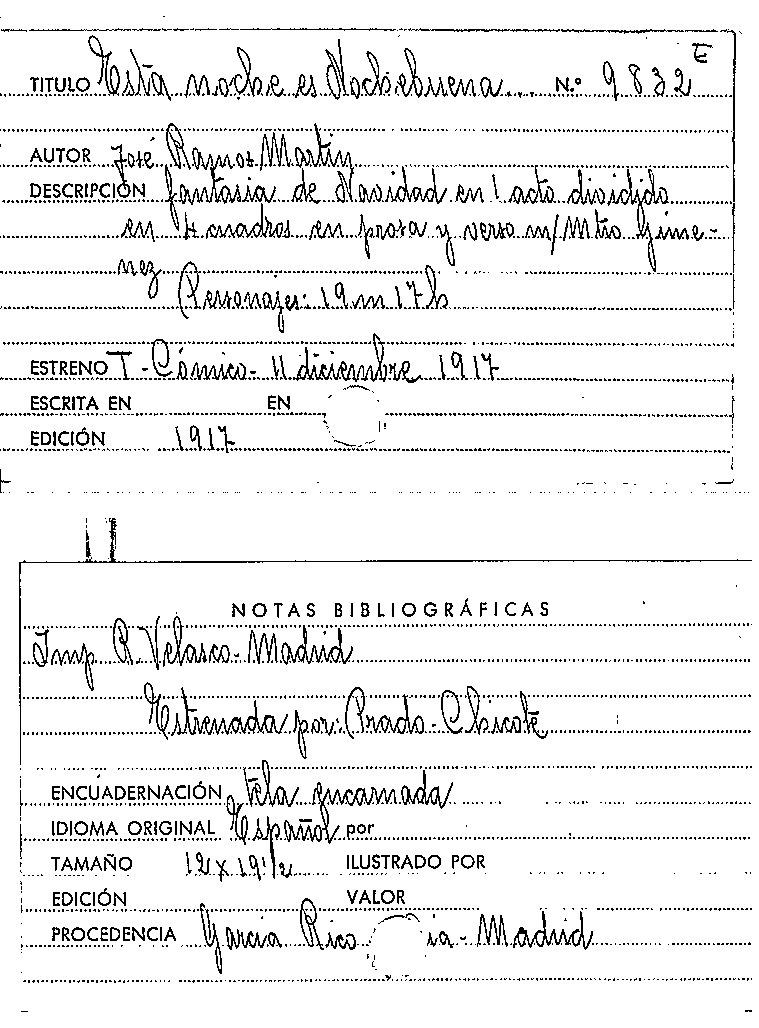 E
TITULO Esta noche es Nochebuena... N.º 9832
AUTOR José Ramos Martin
DESCRIPCIÓN fantasia de Navidad en 1 acto dividido
en 4 cuadros en prosa y verso m/Mtro Gime-
nez
(Personajes: 19 m 17 h
ESTRENO T-Cómico- 11 diciembre 1917
ESCRITA EN EN
EDICIÓN 1917
NOTAS BIBLIOGRÁFICAS
Imp R. Velasco- Madrid
Estrenada por: Prado-Chicote
ENCUADERNACIÓN tela encarnada
IDIOMA ORIGINAL Español por
TAMAÑO 12 x 19 1/2 ILUSTRADO POR
EDICIÓN VALOR
PROCEDENCIA Garcia Rico ia- Madrid